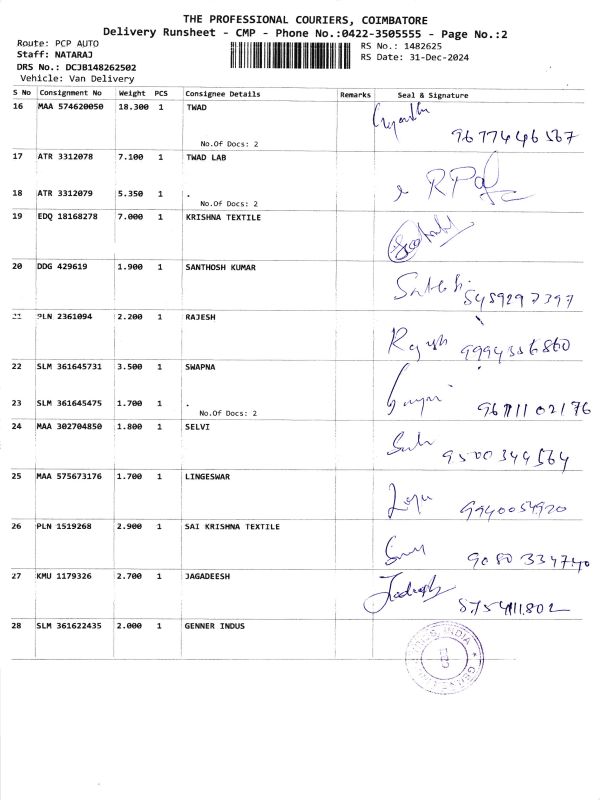 THE PROFESSIONAL COURIERS, COIMBATORE
Delivery Runsheet - CMP - Phone No.:0422-3505555 - Page No.:2
Route: PCP AUTO
Staff: NATARAJ
DRS No.: DCJB148262502
Vehicle: Van Delivery
RS No.: 1482625
RS Date: 31-Dec-2024
S No Consignment No Weight PCS Consignee Details Remarks Seal & Signature
16 MAA 574620050 18.300 1 TWAD
No.Of Docs: 2
9677446567
17 ATR 3312078 7.100 1 TWAD LAB
18 ATR 3312079 5.350 1 .
No.Of Docs: 2
19 EDQ 18168278 7.000 1 KRISHNA TEXTILE
20 DDG 429619 1.900 1 SANTHOSH KUMAR
8489297397
21 PLN 2361094 2.200 1 RAJESH
Rajesh 9994356860
22 SLM 361645731 3.500 1 SWAPNA
23 SLM 361645475 1.700 1 .
No.Of Docs: 2
24 MAA 302704850 1.800 1 SELVI
9500344564
25 MAA 575673176 1.700 1 LINGESWAR
9940054920
26 PLN 1519268 2.900 1 SAI KRISHNA TEXTILE
9080334740
27 KMU 1179326 2.700 1 JAGADEESH
8754111802
28 SLM 361622435 2.000 1 GENNER INDUS